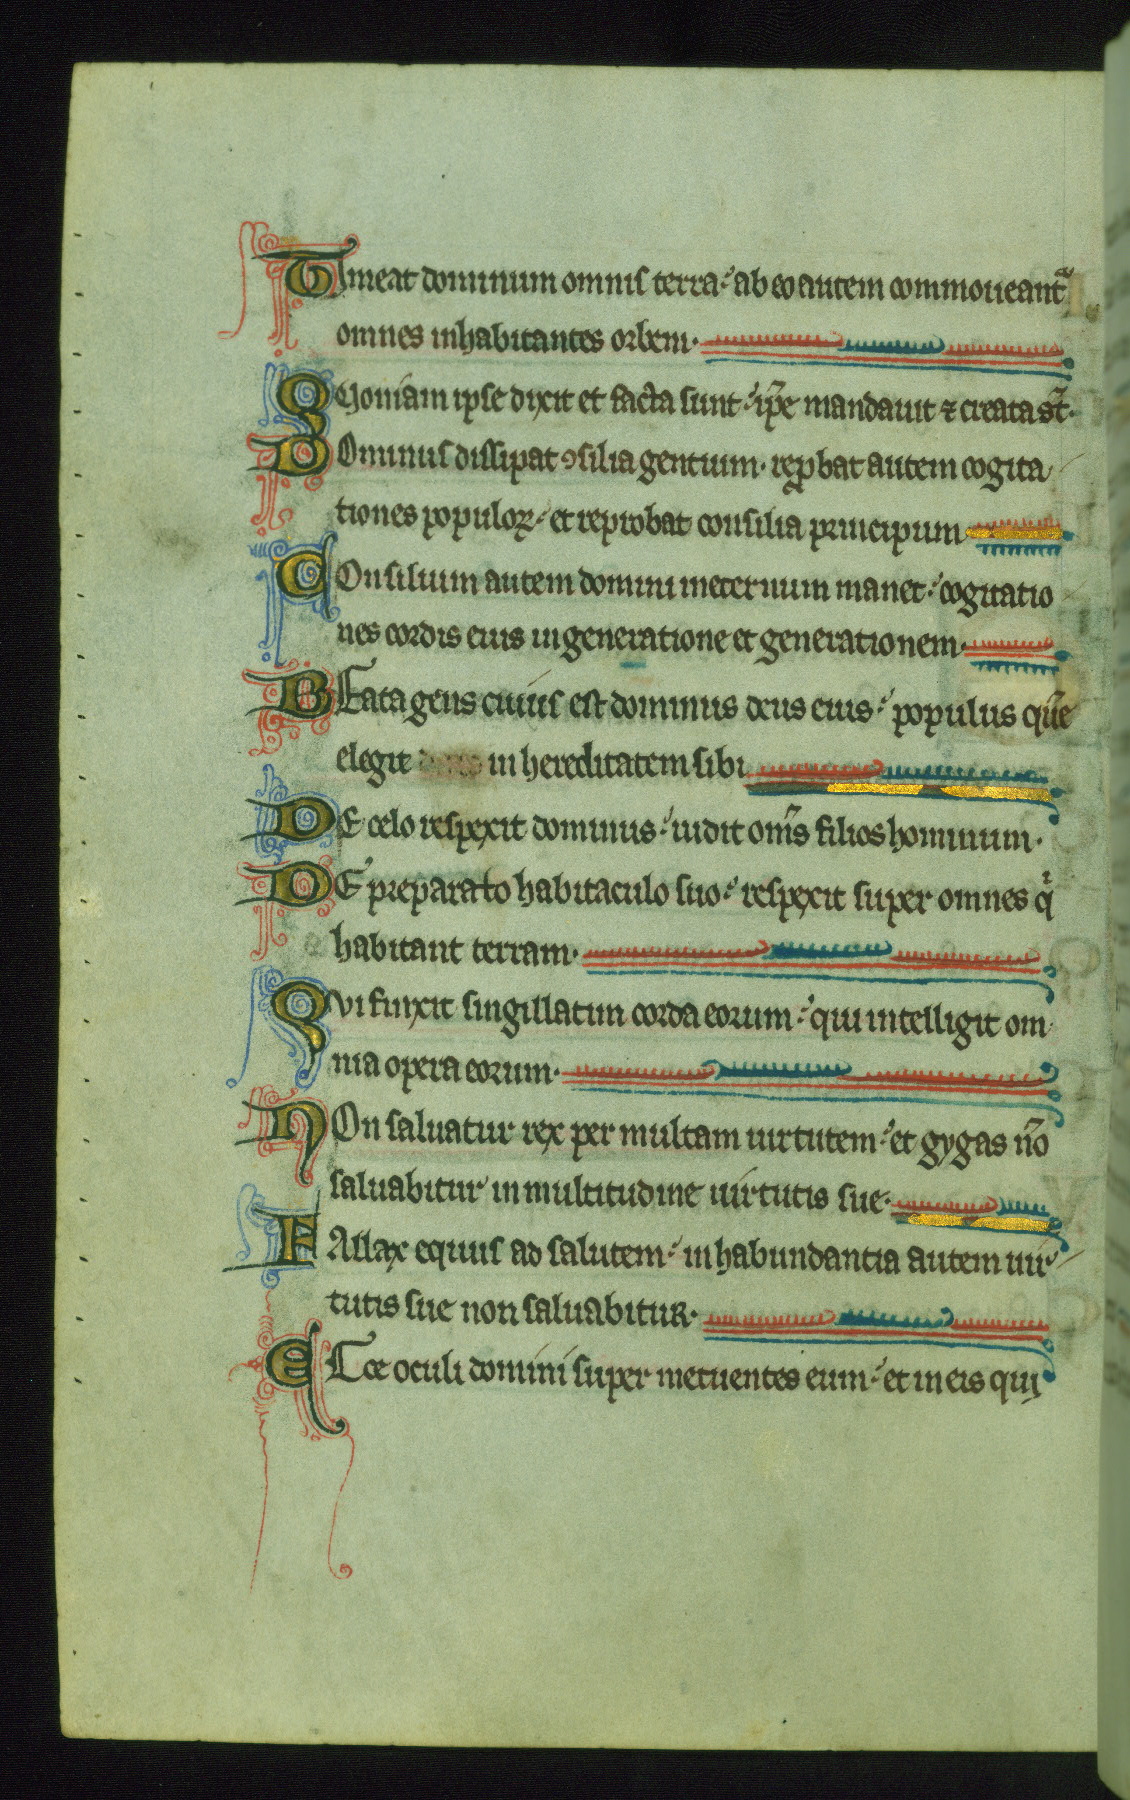 Timeat dominum omnis terra· ab eo autem commoueant᷑
omnes inhabitantes orbem·
Quoniam ipse dixit et facta sunt· ip̄e mandauit ⁊ creata st̄·
Dominus dissipat ꝯsilia gentium· rep̱bat autem cogita
tiones populoꝝ· et reprobat consilia principum
Consilium autem domini ineternum manet· cogitatio
nes cordis eius in generatione et generationem·
Beata gens cuius est dominus deus eius· populus que᷑
elegit in hereditatem sibi
De celo respexit dominus· uidit om̄s filios hominum·
De preparato habitaculo suo· respexit super omnes qͥ
habitant terram·
Qui finxit singillatim corda eorum· qui intelligit om
nia opera eorum·
Non saluatur rex per multam uirtutem· et gygas nō
saluabitur in multitudine uirtutis sue·
Fallax equus ad salutem· in habundantia autem uir
tutis sue non saluabitur·
Ecce oculi domini super metuentes eum· et in eis qui